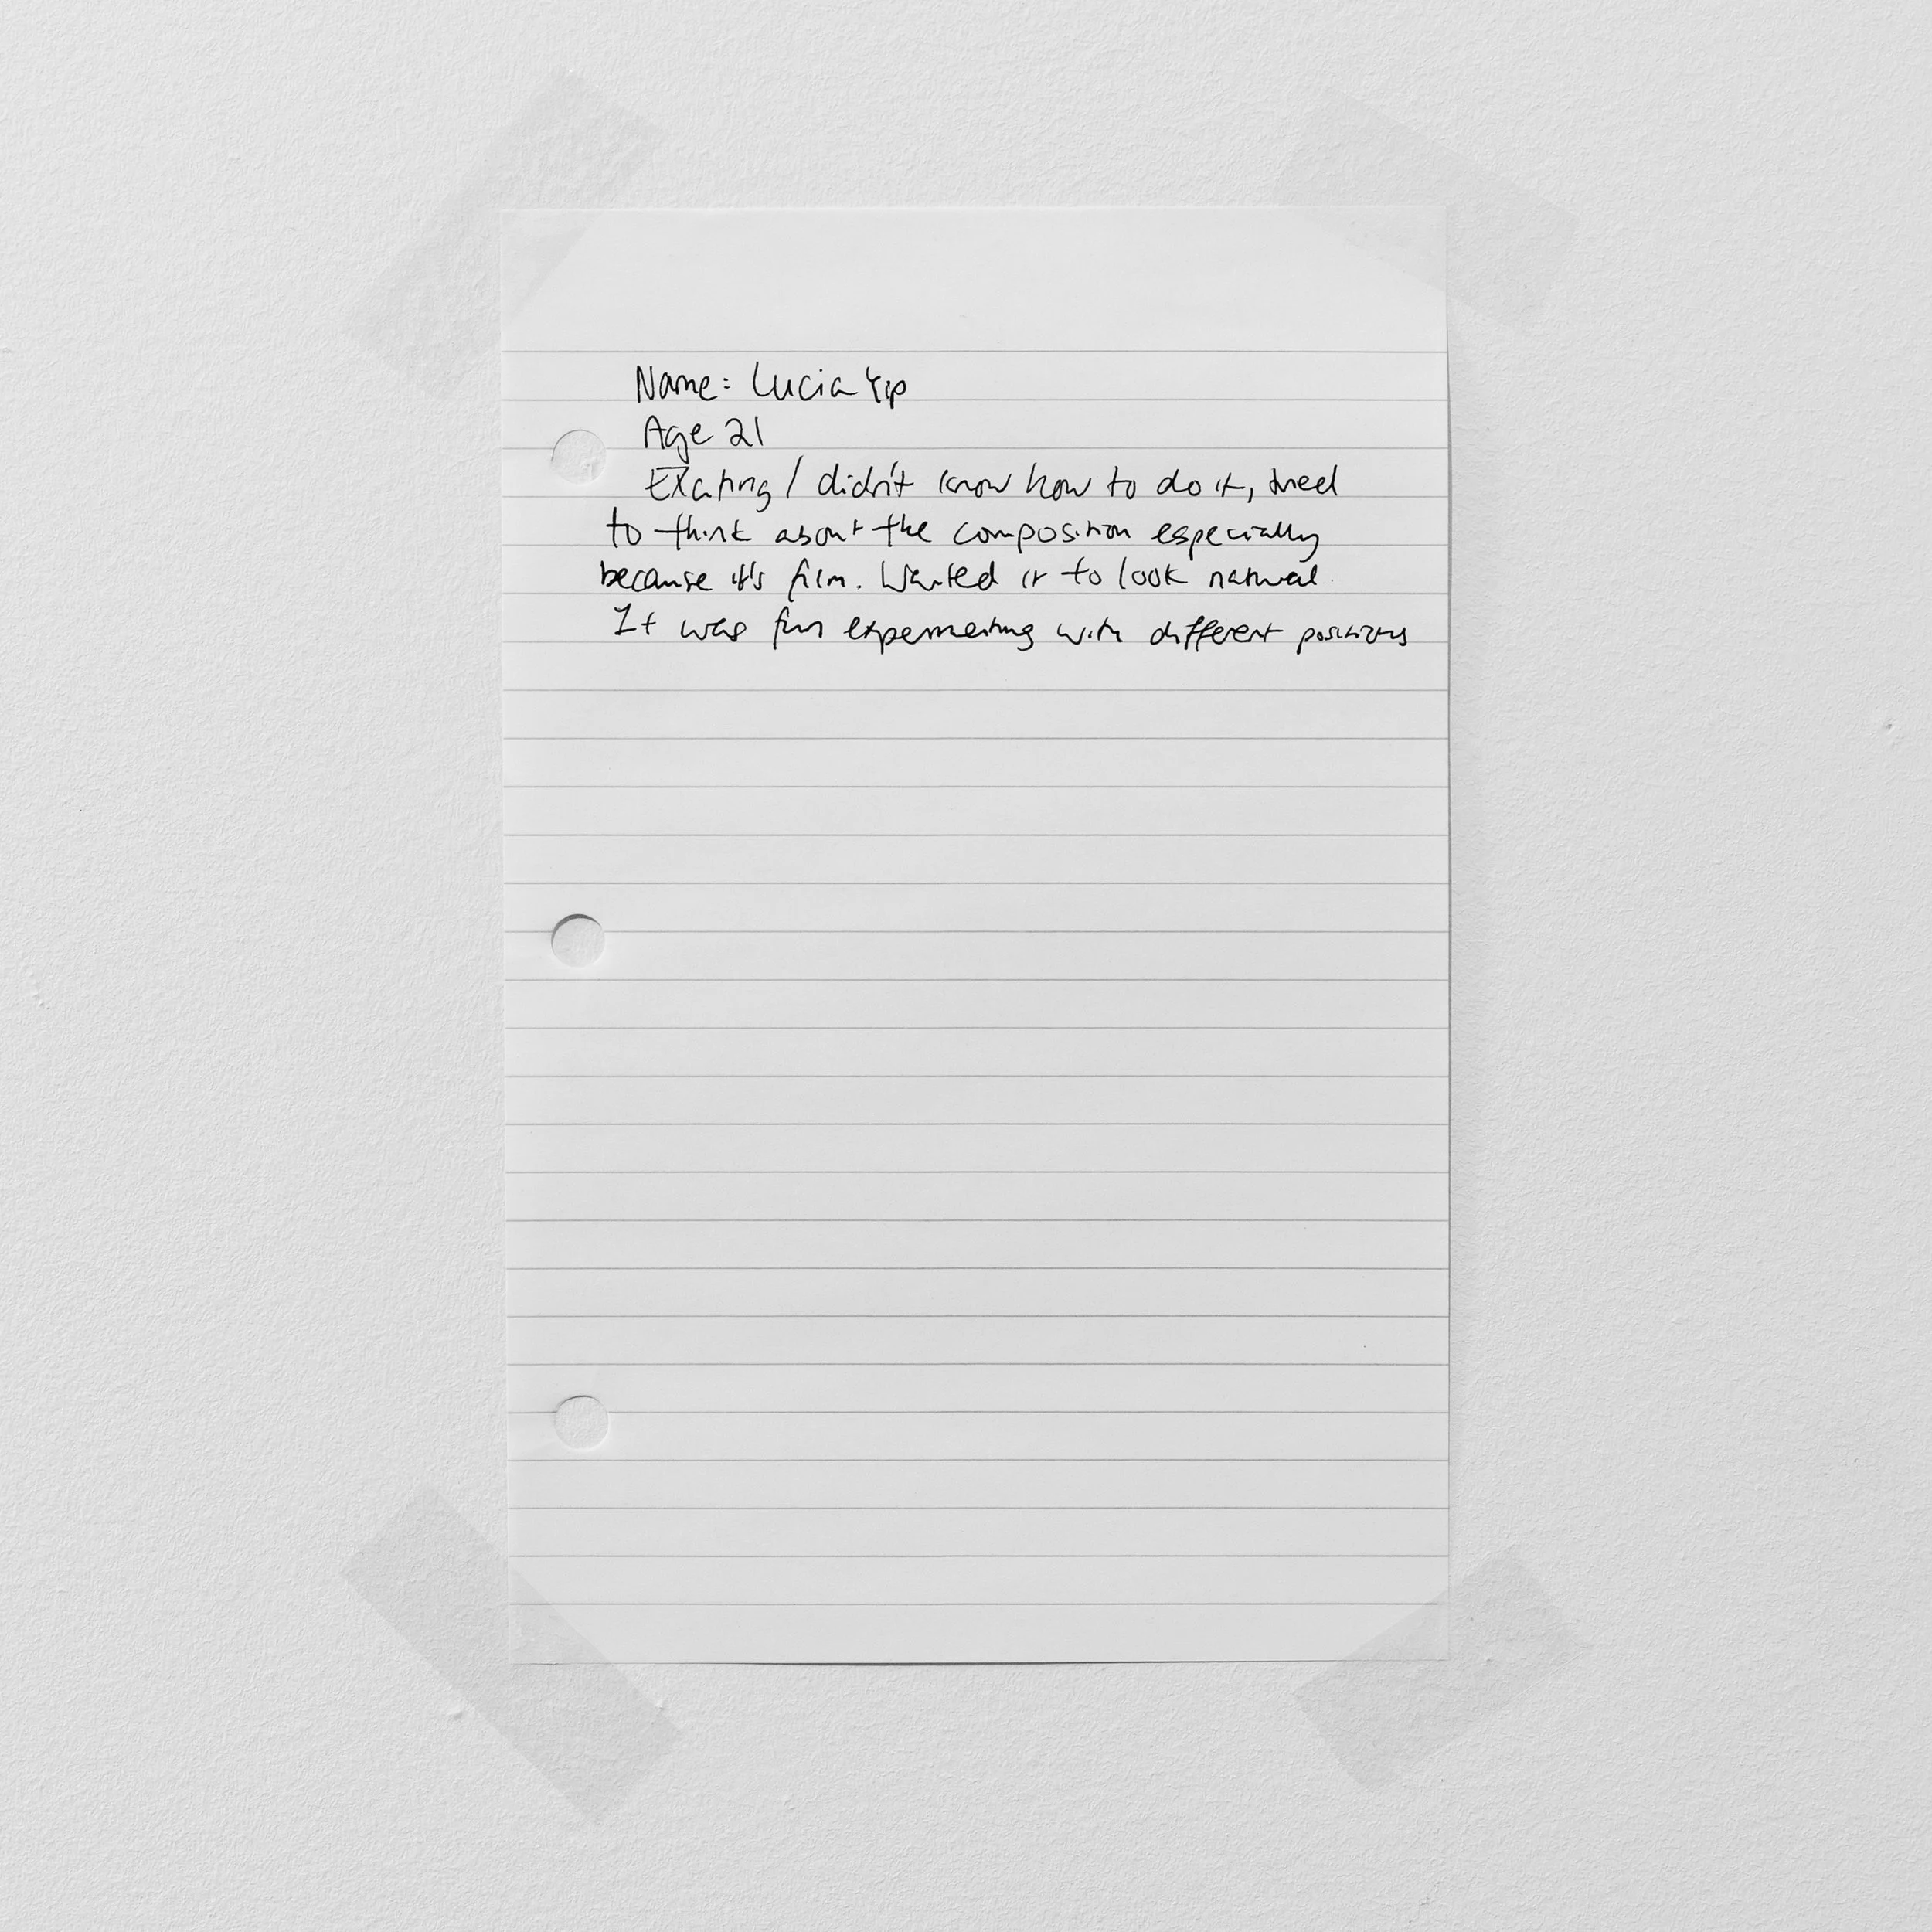 Name: Lucia Yip
Age 21
Exciting / didn't know how to do it, tried
to think about the composition especially
because it's film. Wanted it to look natural.
It was fun experimenting with different positions